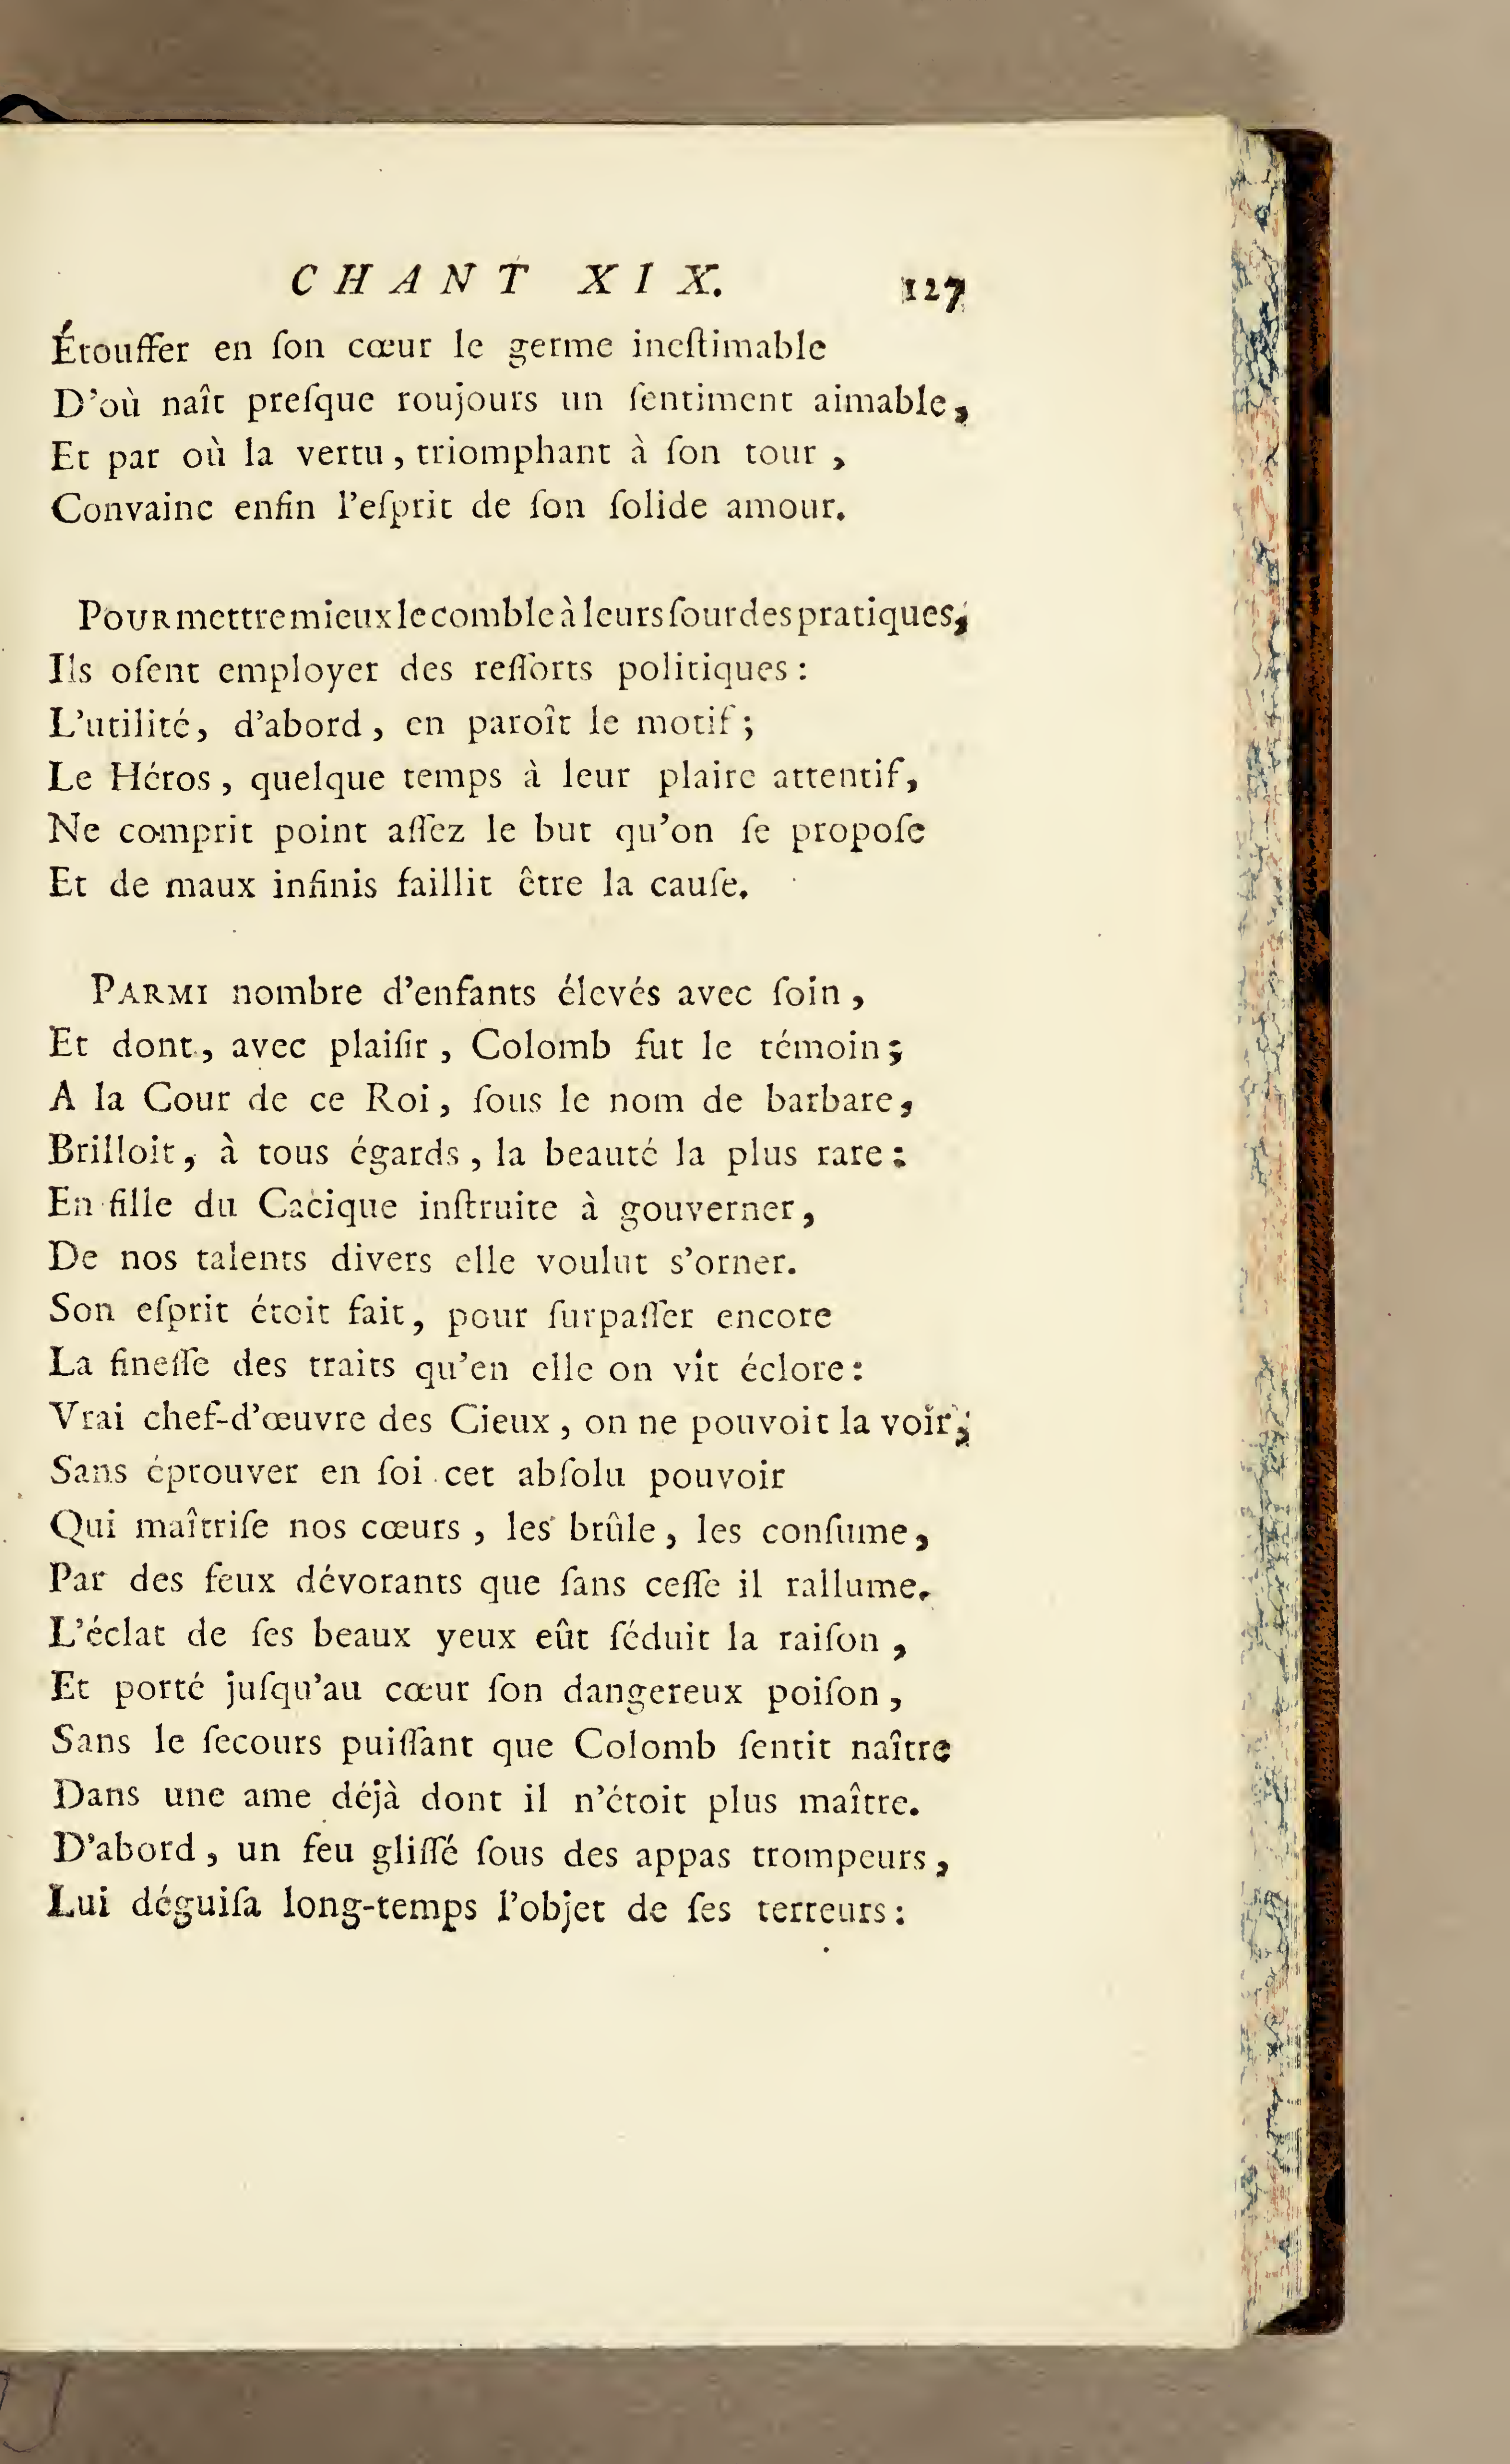 CHANT XIX. 127
Étouffer en ſon cœur le germe ineſtimable
D'où naît preſque toujours un ſentiment aimable,
Et par où la vertu, triomphant à ſon tour,
Convainc enfin l'eſprit de ſon ſolide amour.
POUR mettre mieux le comble à leurs ſourdes pratiques,
Ils oſent employer des reſſorts politiques:
L'utilité, d'abord, en paroît le motif;
Le Héros, quelque temps à leur plaire attentif,
Ne comprit point aſſez le but qu'on ſe propoſe
Et de maux infinis faillit être la cauſe.
PARMI nombre d'enfants élevés avec ſoin,
Et dont, avec plaiſir, Colomb fut le témoin;
A la Cour de ce Roi, ſous le nom de barbare,
Brilloit, à tous égards, la beauté la plus rare:
En fille du Cacique inſtruite à gouverner,
De nos talents divers elle voulut s'orner.
Son eſprit étoit fait, pour ſurpaſſer encore
La fineſſe des traits qu'en elle on vît éclore:
Vrai chef-d'œuvre des Cieux, on ne pouvoit la voir,
Sans éprouver en ſoi cet abſolu pouvoir
Qui maîtriſe nos cœurs, les brûle, les conſume,
Par des feux dévorants que ſans ceſſe il rallume.
L'éclat de ſes beaux yeux eût ſéduit la raiſon,
Et porté juſqu'au cœur ſon dangereux poiſon,
Sans le ſecours puiſſant que Colomb ſentit naître
Dans une ame déjà dont il n'étoit plus maître.
D'abord, un feu gliſſé ſous des appas trompeurs,
Lui déguiſa long-temps l'objet de ſes terreurs: